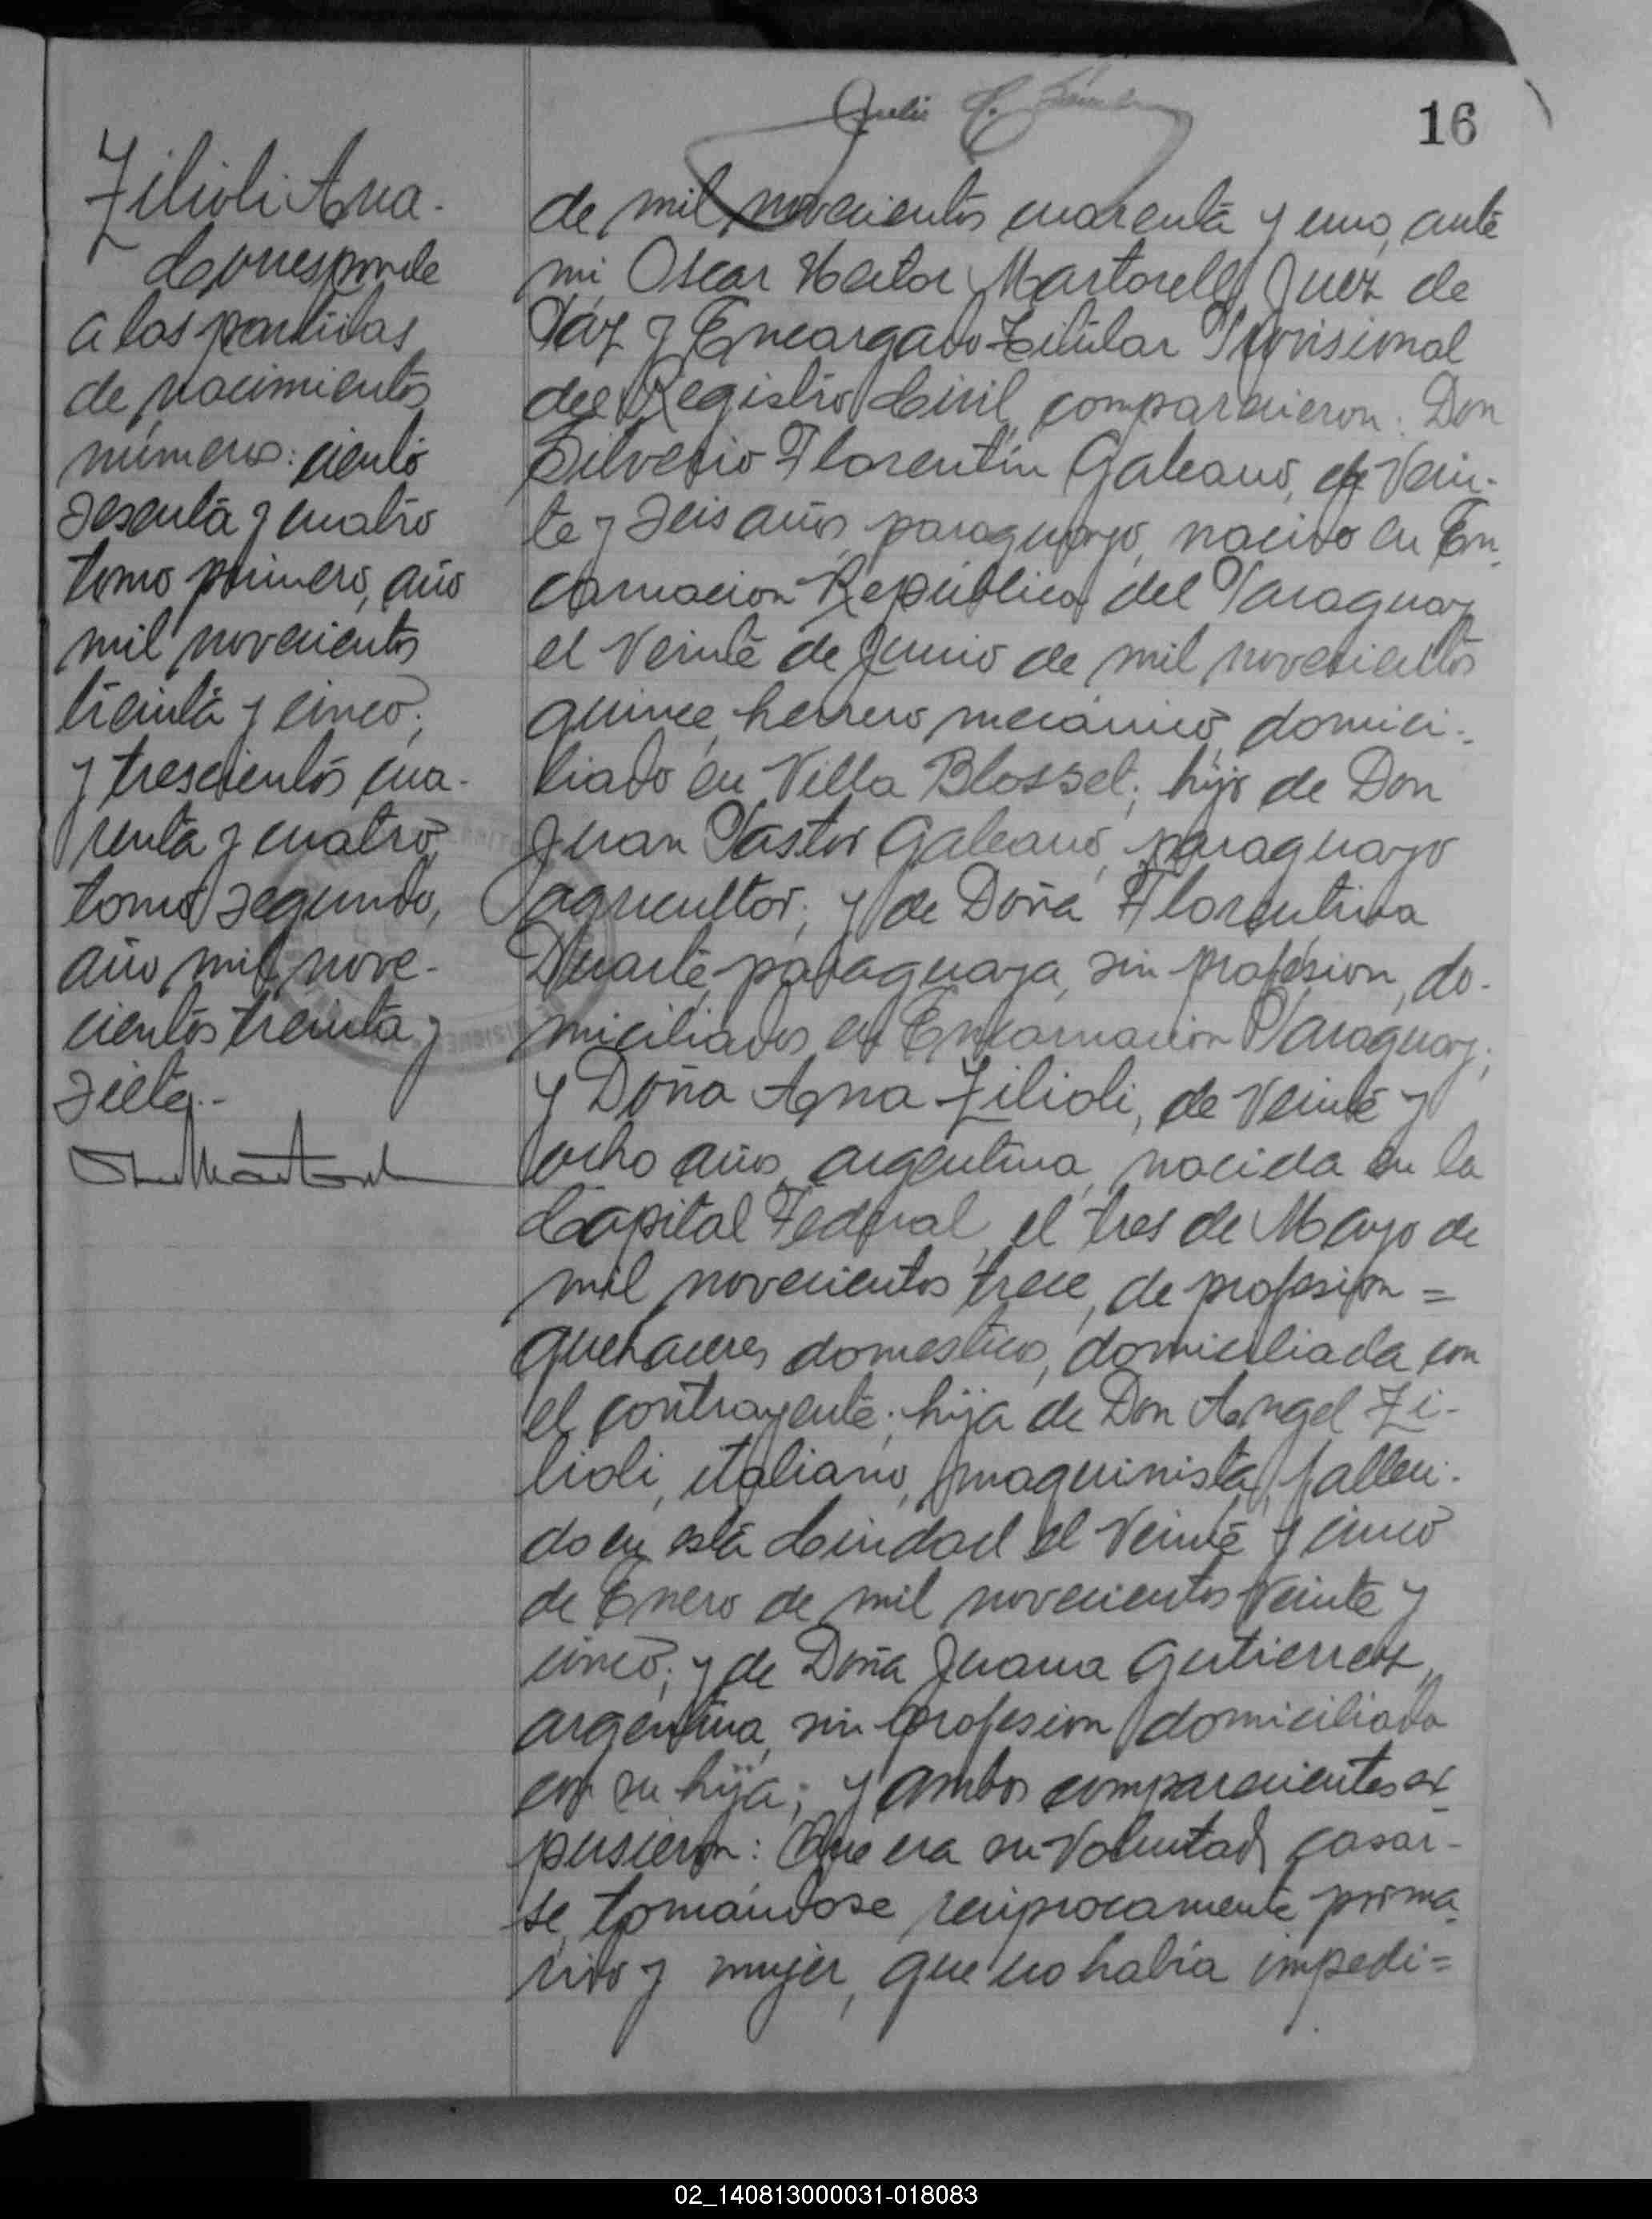 16
Zilioli Ana.
Corresponde
a las partidas
de nacimientos
números: ciento
sesenta y cuatro
tomo primero, año
mil novecientos
treinta y cinco;
y trescientos cua-
renta y cuatro,
tomo segundo,
año mil nove-
cientos treinta y
siete.-
de mil novecientos cuarenta y uno, ante
mi, Oscar Hector Martorell, Juez de
Páz y Encargado Titular Provisional
del Registro Civil, comparecieron: Don
Silverio Florentín Galeano, de Vein-
te y seis años, paraguayo, nacido en En-
carnacion República del Paraguay
el Veinte de Junio de mil novecientos
quince, herrero mecánico, domici-
liado en Villa Blosset; hijo de Don
Juan Pastor Galeano, paraguayo
agricultor; y de Doña Florentina
Duarte, paraguaya, sin profesion, do-
miciliados en Encarnacion Paraguay;
y Doña Ana Zilioli, de Veinte y
ocho años, argentina, nacida en la
Capital Federal, el tres de Mayo de
mil novecientos trece, de profesion =
quehaceres domesticos, domiciliada con
el contrayente; hija de Don Angel Zi-
lioli, italiano, maquinista, falleci-
do en esta Ciudad el Veinte y cinco
de Enero de mil novecientos Veinte y
cinco; y de Doña Juana Gutierrez,
argentina, sin profesion, domiciliada
con su hija; y ambos comparecientes ex-
pusieron: Que era su Voluntad, casar-
se, tomándose reciprocamente por ma-
rido y mujer, que no habia impedi=
02_140813000031-018083